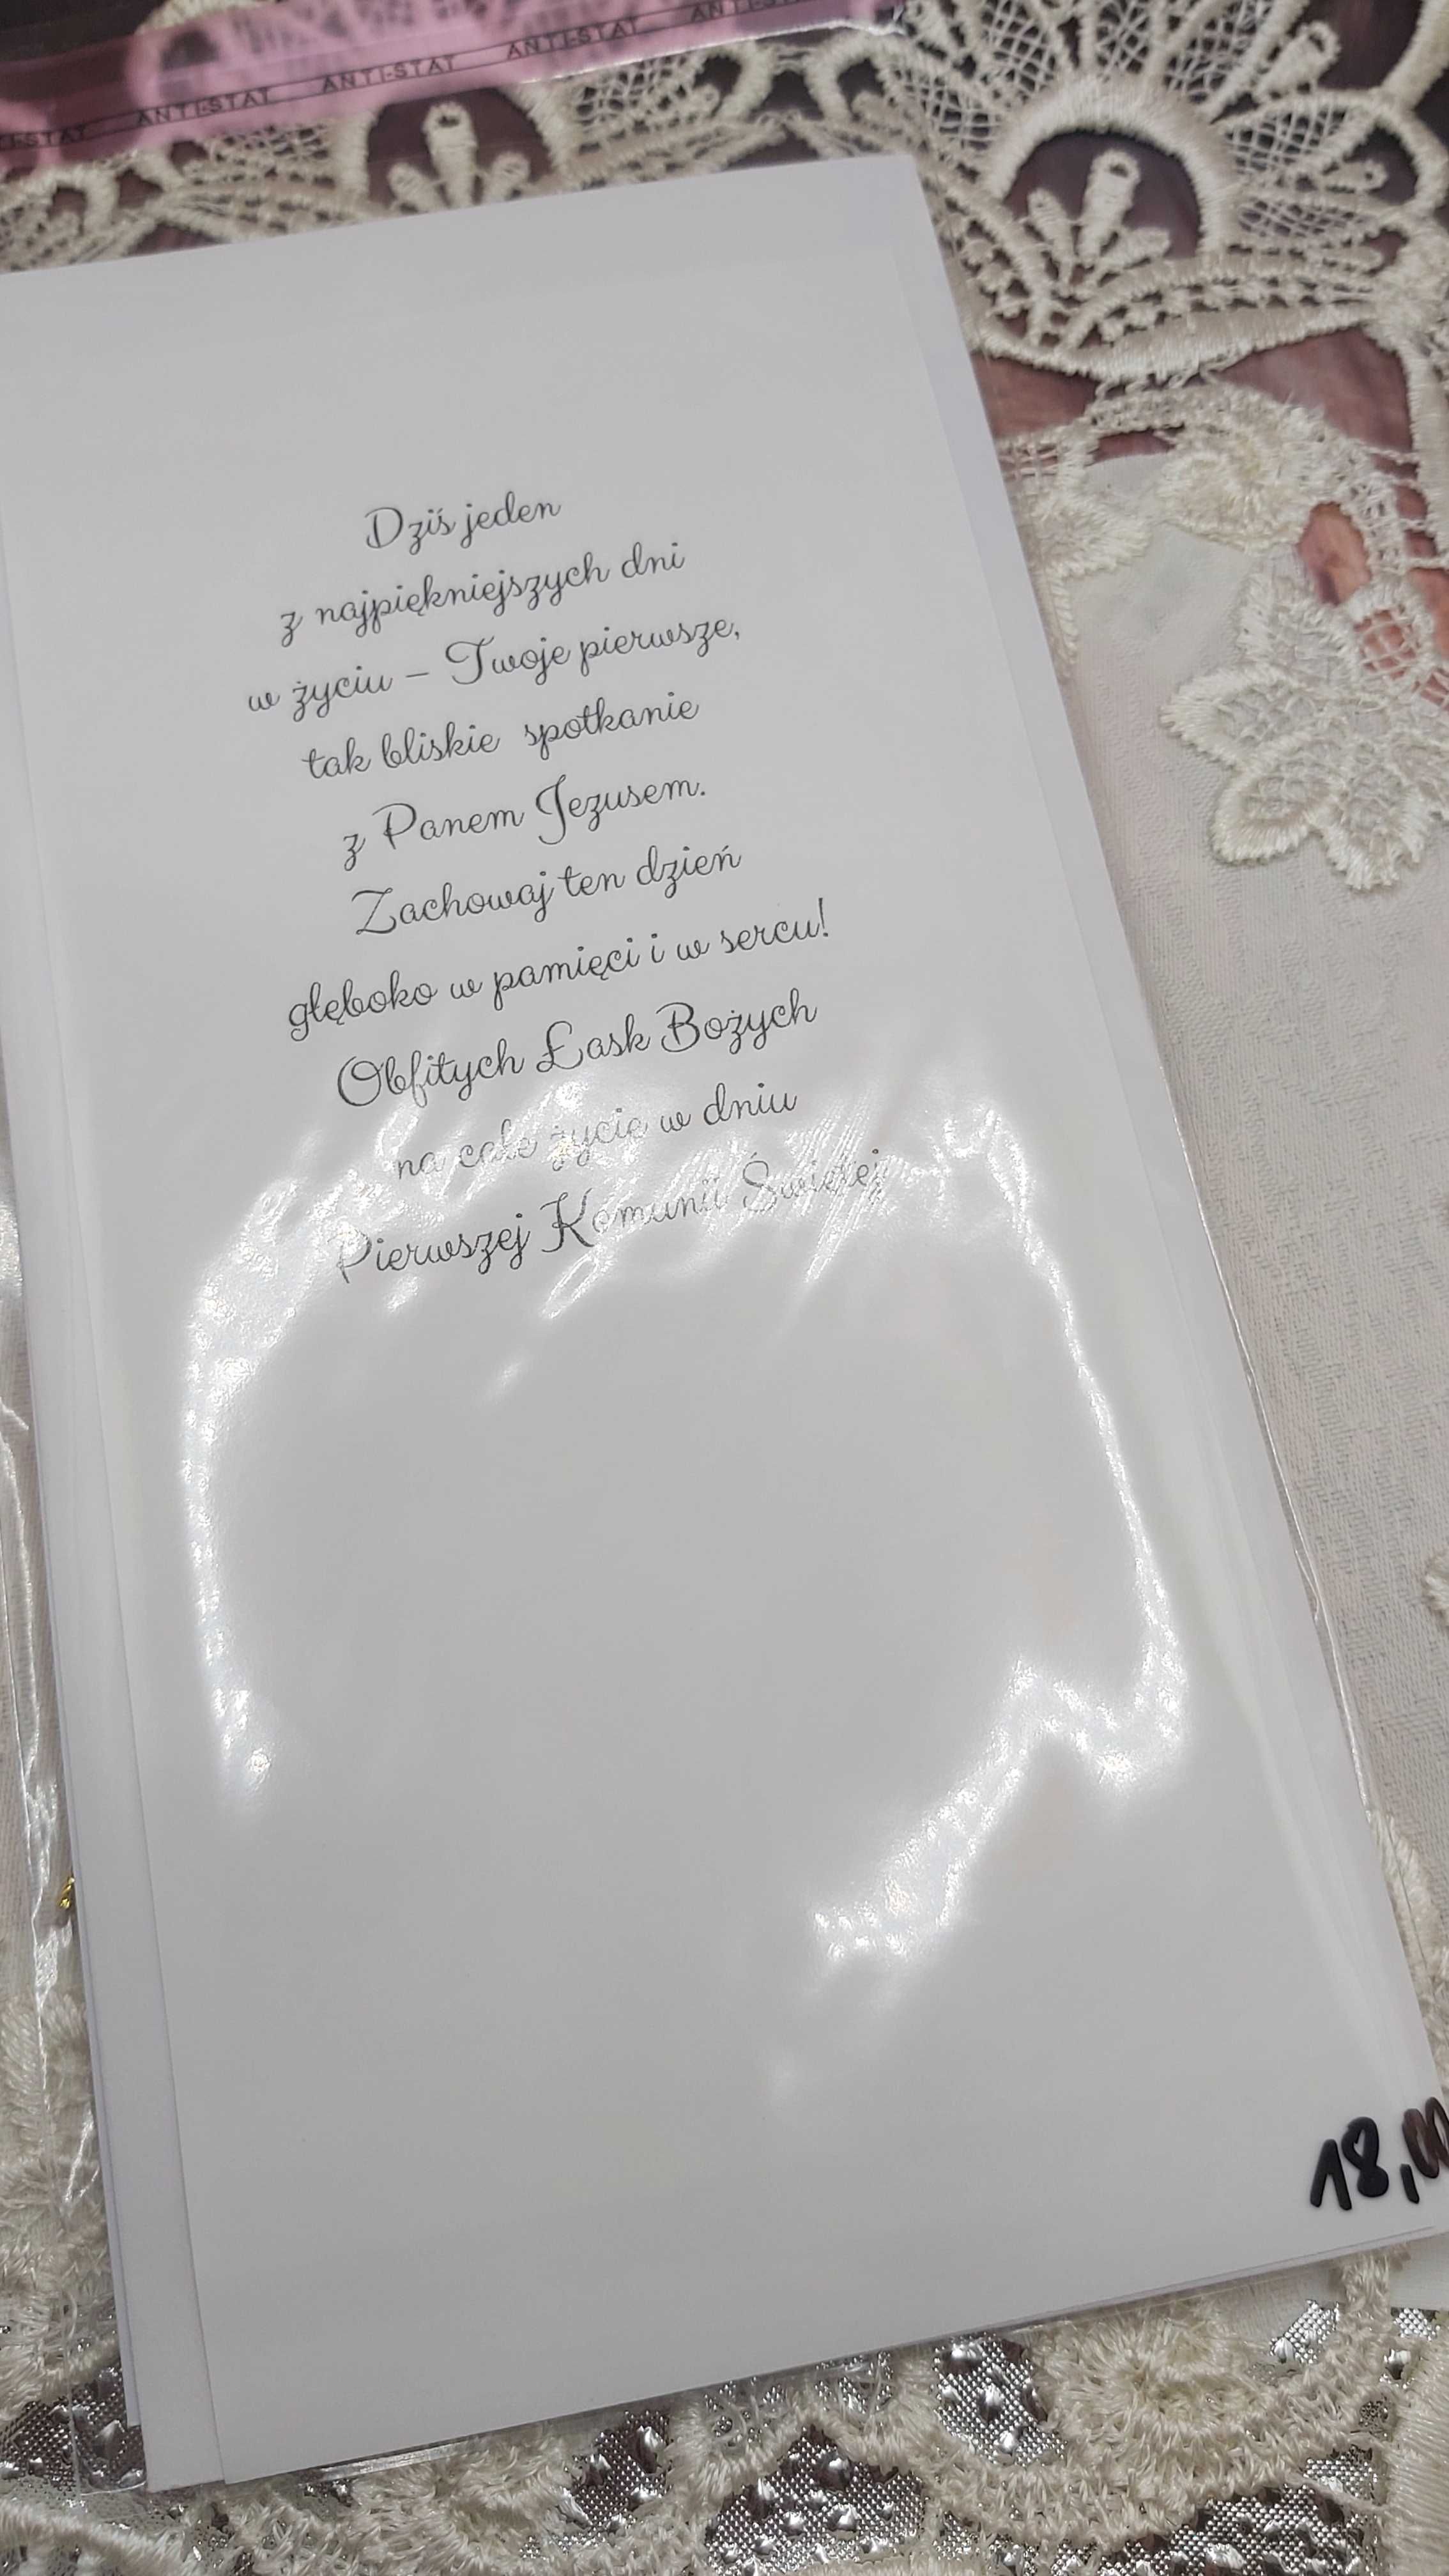 ANTI-STAT ANTI-STAT ANTI-STAT ANTI-STAT
Dziś jeden
z najpiękniejszych dni
w życiu – Twoje pierwsze,
tak bliskie spotkanie
z Panem Jezusem.
Zachowaj ten dzień
głęboko w pamięci i w sercu!
Obfitych Łask Bożych
na całe życie w dniu
Pierwszej Komunii Świętej
18,00